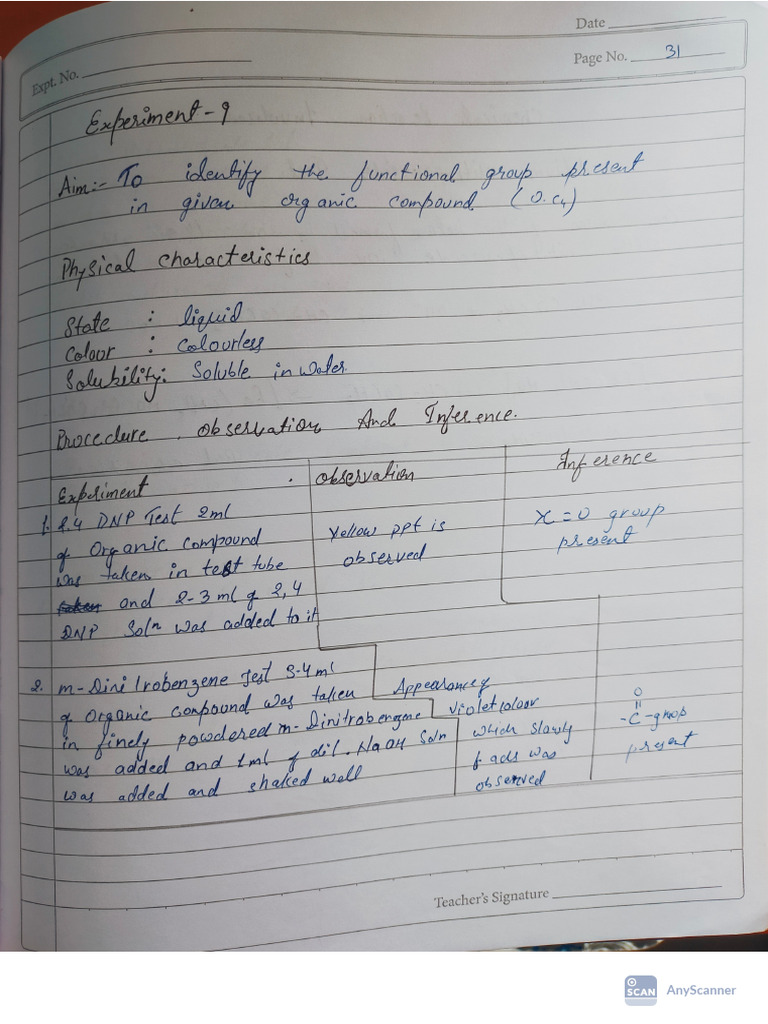 Date
Expt. No.
Page No. 31
Experiment - 9
Aim:- To identify the functional group present
in given organic compound (O.C4)
Physical characteristics
State : liquid
Colour : Colourless
Solubility: Soluble in water.
Procedure, observation And Inference.
Experiment
Observation
Inference
1. 2.4 DNP Test 2ml
of Organic compound
was taken in test tube
taken and 2-3 ml of 2,4
DNP Solⁿ was added to it
Yellow ppt is
observed
X=O group
present
2. m-Dinitrobenzene Test 3-4 ml
of Organic compound was taken
in finely powdered m-Dinitrobenzene
was added and 1ml of dil. NaOH Soln
was added and shaked well
Appearance of
violet colour
which slowly
fads was
observed
O
||
-C-group
present
Teacher's Signature
SCAN AnyScanner